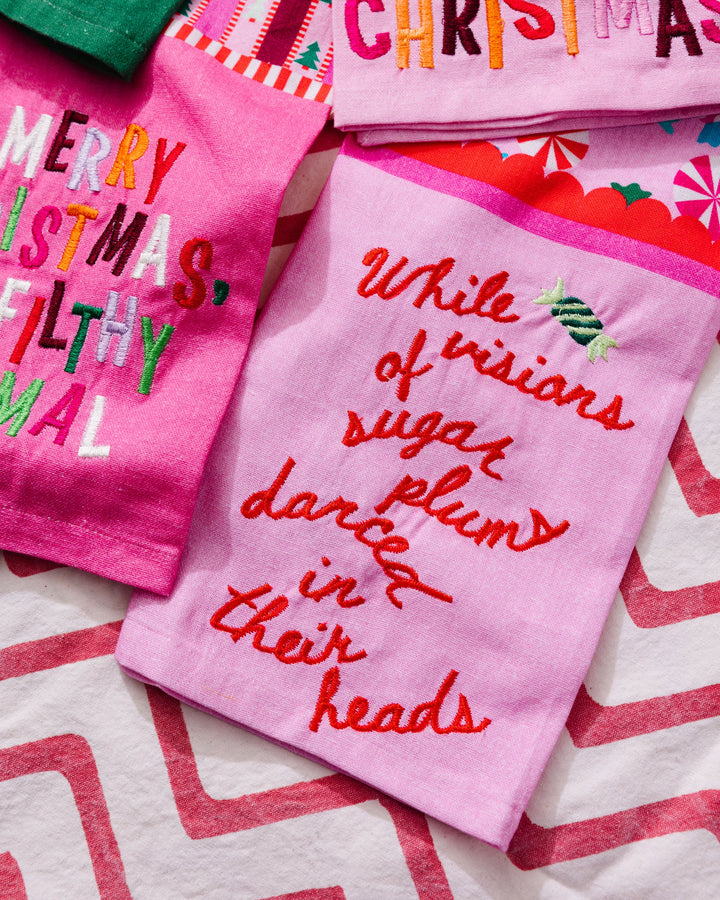 CHRISTMAS
MERRY
CHRISTMAS,
FILTHY
While
visions
of
sugar
plums
danced
in
their
heads